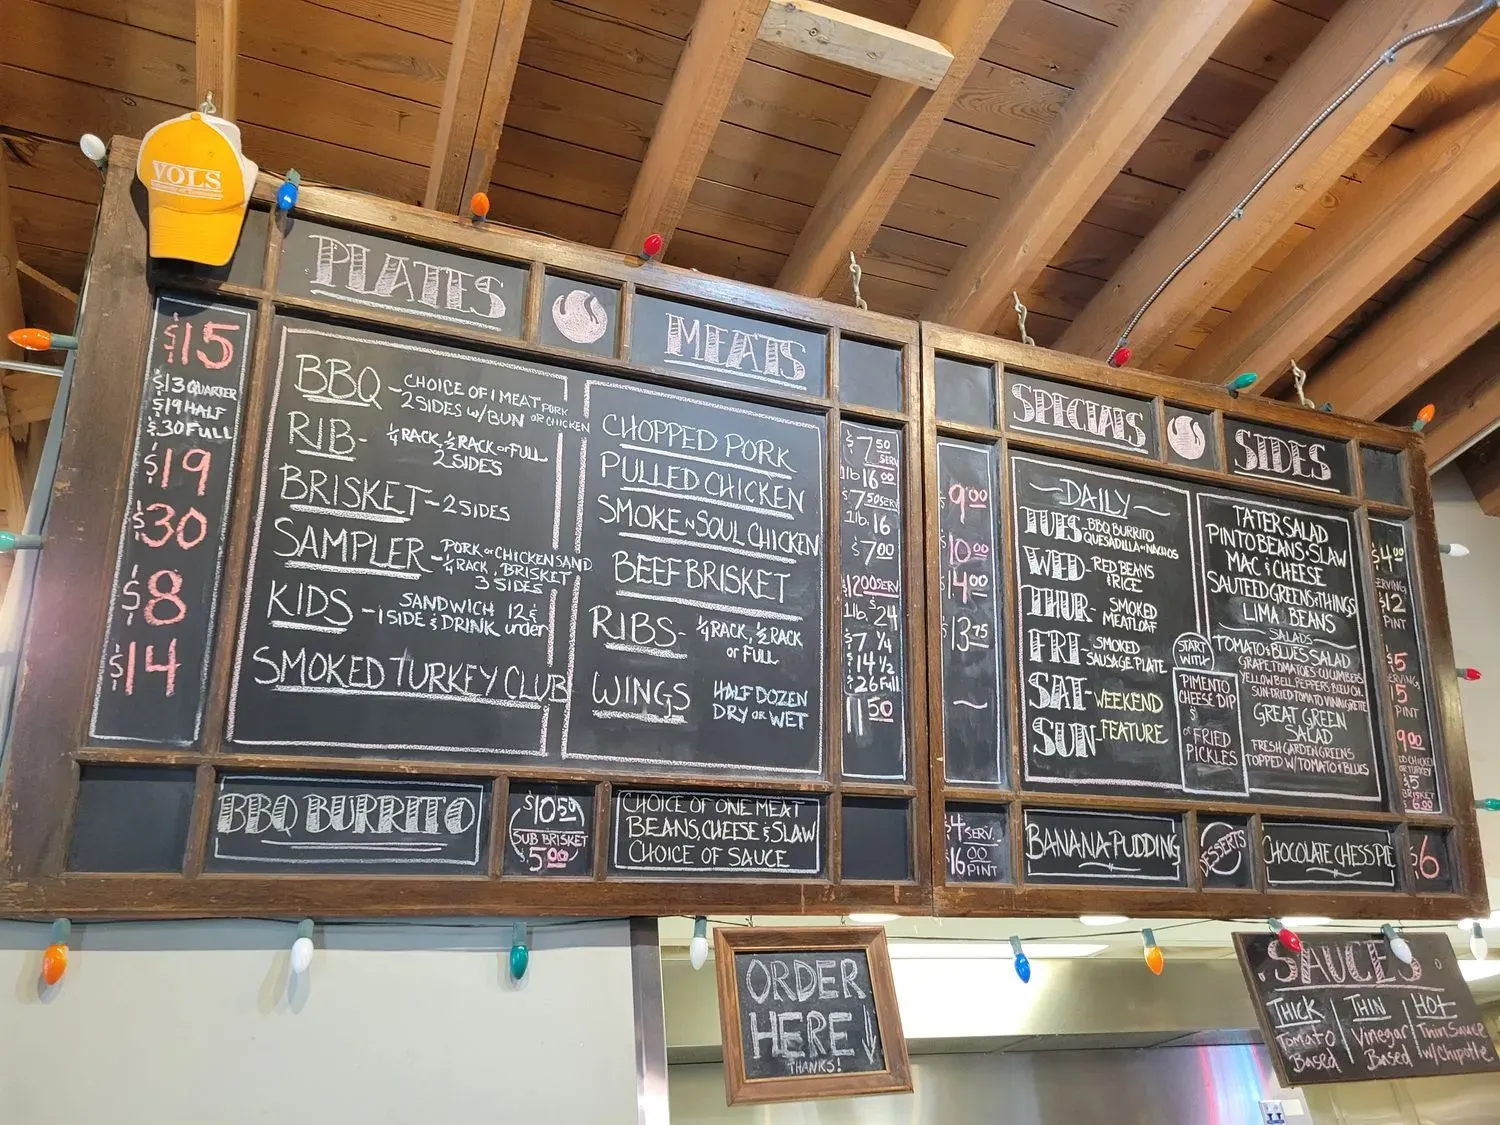 VOLS
PLATES
$15
$13 QUARTER
$19 HALF
$30 FULL
$19
$30
$8
$14
BBQ - CHOICE OF 1 MEAT PORK OR CHICKEN
2 SIDES W/ BUN
RIB - ¼ RACK, ½ RACK OR FULL
2 SIDES
BRISKET - 2 SIDES
SAMPLER - PORK OR CHICKEN SAND
¼ RACK, BRISKET
3 SIDES
KIDS - SANDWICH 12 &
1 SIDE & DRINK under
SMOKED TURKEY CLUB
MEATS
CHOPPED PORK
PULLED CHICKEN
SMOKE N SOUL CHICKEN
BEEF BRISKET
RIBS - ¼ RACK, ½ RACK
OR FULL
WINGS HALF DOZEN
DRY OR WET
$7.50 SERV
1lb 16.00
$7.50 SERV
1lb. 16
$7.00
$12.00 SERV
1lb. $24
$7 ¼
$14 ½
$26 Full
11.50
BBQ BURRITO
$10.50
SUB BRISKET
$5.00
CHOICE OF ONE MEAT
BEANS, CHEESE & SLAW
CHOICE OF SAUCE
SPECIALS
$9.00
10.00
14.00
$13.75
~
~DAILY~
TUES - BBQ BURRITO
QUESADILLA OR NACHOS
WED - RED BEANS
& RICE
THUR - SMOKED
MEATLOAF
FRI - SMOKED
SAUSAGE PLATE
SAT - WEEKEND
SUN - FEATURE
START
WITH
PIMENTO
CHEESE DIP
$
OR FRIED
PICKLES
SIDES
TATER SALAD
PINTO BEANS SLAW
MAC & CHEESE
SAUTEED GREENS & THINGS
LIMA BEANS
SALADS
TOMATO & BLUES SALAD
GRAPE TOMATOES CUCUMBERS
YELLOW BELL PEPPERS BLEU CH.
SUN-DRIED TOMATO VINAIGRETTE
GREAT GREEN
SALAD
FRESH GARDEN GREENS
TOPPED W/ TOMATO & BLUES
$4.00
SERVING
$12
PINT
$5
SERVING
15
PINT
9.00
CHICKEN
OR TURKEY
$5
BRISKET
$6.00
$4 SERV.
$16.00
PINT
BANANA PUDDING
DESSERTS
CHOCOLATE CHESS PIE
$6
ORDER
HERE
THANKS!
SAUCES
THICK
Tomato
Based
THIN
Vinegar
Based
HOT
Thin Sauce
w/ Chipotle